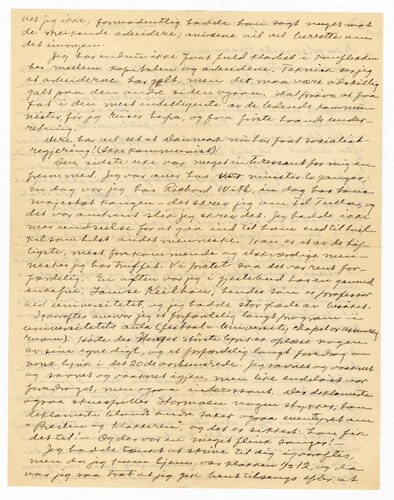 vet jeg ikke; formodentlig hadde han sagt noget mot
de streikende arbeidere; aviserne vil vel berette om
det imorgen.
Jeg har endnu ikke faat fuld klarhet i konflikten
her mellem kapitalen og arbeiden. Teknisk sier jeg
at arbeiderne har galt, men det maa være adskillig
galt paa den anden siden ogsaa. skal prøve at faa
fat i den mest intelligente av de ledende kommu-
nister, før jeg reiser herfra, og faa første haands under-
retning.
dere har vel set at Danmark nu har faat socialistisk
regjering! (Ikke kommunist).
Den sidste uke var meget interessant for mig en
hjemmed. Jeg var hos ministre to ganger;
en dag var jeg hos Richard With, en dag hos hans
majestæt kongen - det skrev jeg om til
det var omtrent slik jeg skrev det. Jeg hadde ikke
mer undseelse for at gaa ind til ham end til hvil-
ket somhelst andet menneske. Han er et av de høf-
ligste, mest forekommende og elskværdige men-
nesker jeg har truffet. Vi pratet saa det var rent for-
færdelig. En aften var jeg i gjestebud hos en gammel
enkefru, Louise Keilhau, hendes søn er professor
ved universitetet og jeg hadde stor glæde av besøket.
Igaaraftes overvar jeg et forfærdelig langt program i
universitetets aula (festsal - University chapel or assembly
room). Hørte der Norges største lyriker oplæse nogen
av sine egne digt, og et forfærdelig langt foredrag om
norsk lyrik i det 20de aarhundrede. Jeg sovnet og vaaknet
og sovnet og vaaknet igjen, men like endeløst var
foredraget, men det var interessant. Der deklamerte
ogsaa skuespiller Stormoen nogen stykker, han
deklamerte blandt andre saker - graa eventyret om
"Presten og Klokkeren", og det er sikkert: han fik
det til! - Og der var en meget flink sanger!
Jeg hadde tænkt at skrive til dig igaaraftes,
men da jeg kom hjem, var klokken 1/2 12, og da
var jeg saa træt at jeg gik hen tilsengs efter at